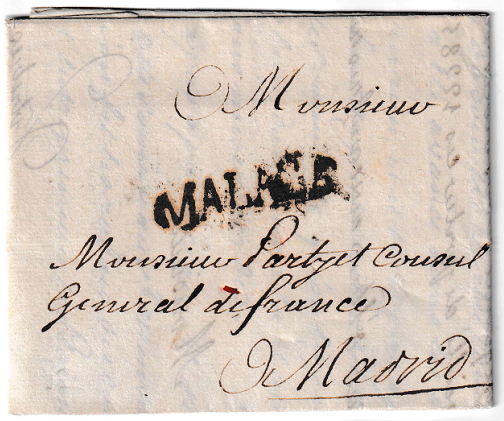 Monsieur
MALAGA
Monsieur Partyet Consul
General de france
A Madrid